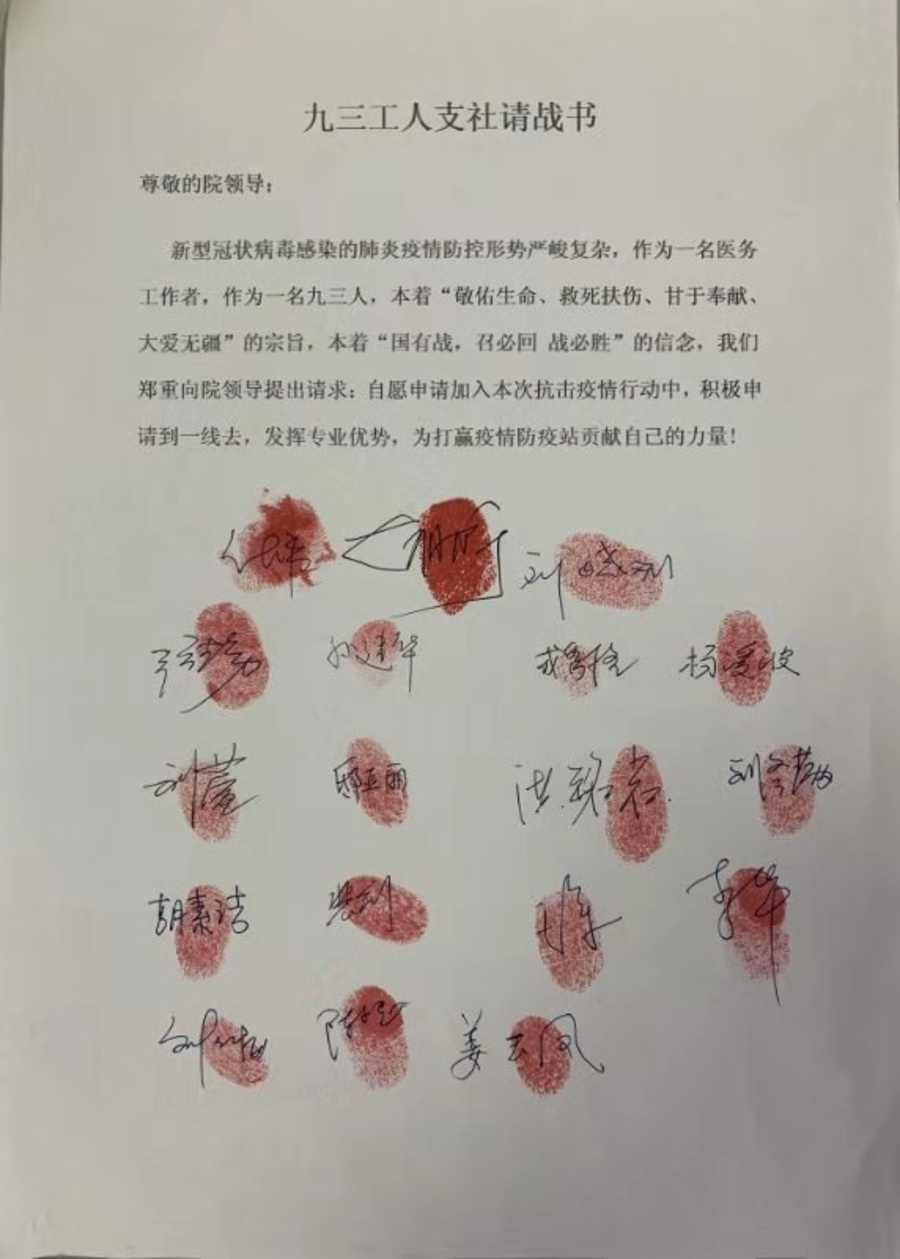 九三工人支社请战书
尊敬的院领导：
新型冠状病毒感染的肺炎疫情防控形势严峻复杂，作为一名医务
工作者，作为一名九三人，本着“敬佑生命、救死扶伤、甘于奉献、
大爱无疆”的宗旨，本着“国有战，召必回 战必胜”的信念，我们
郑重向院领导提出请求：自愿申请加入本次抗击疫情行动中，积极申
请到一线去，发挥专业优势，为打赢疫情防疫站贡献自己的力量！
孙建华 杨凌波
刘萱 邸亚丽
胡素洁 李华
姜云凤